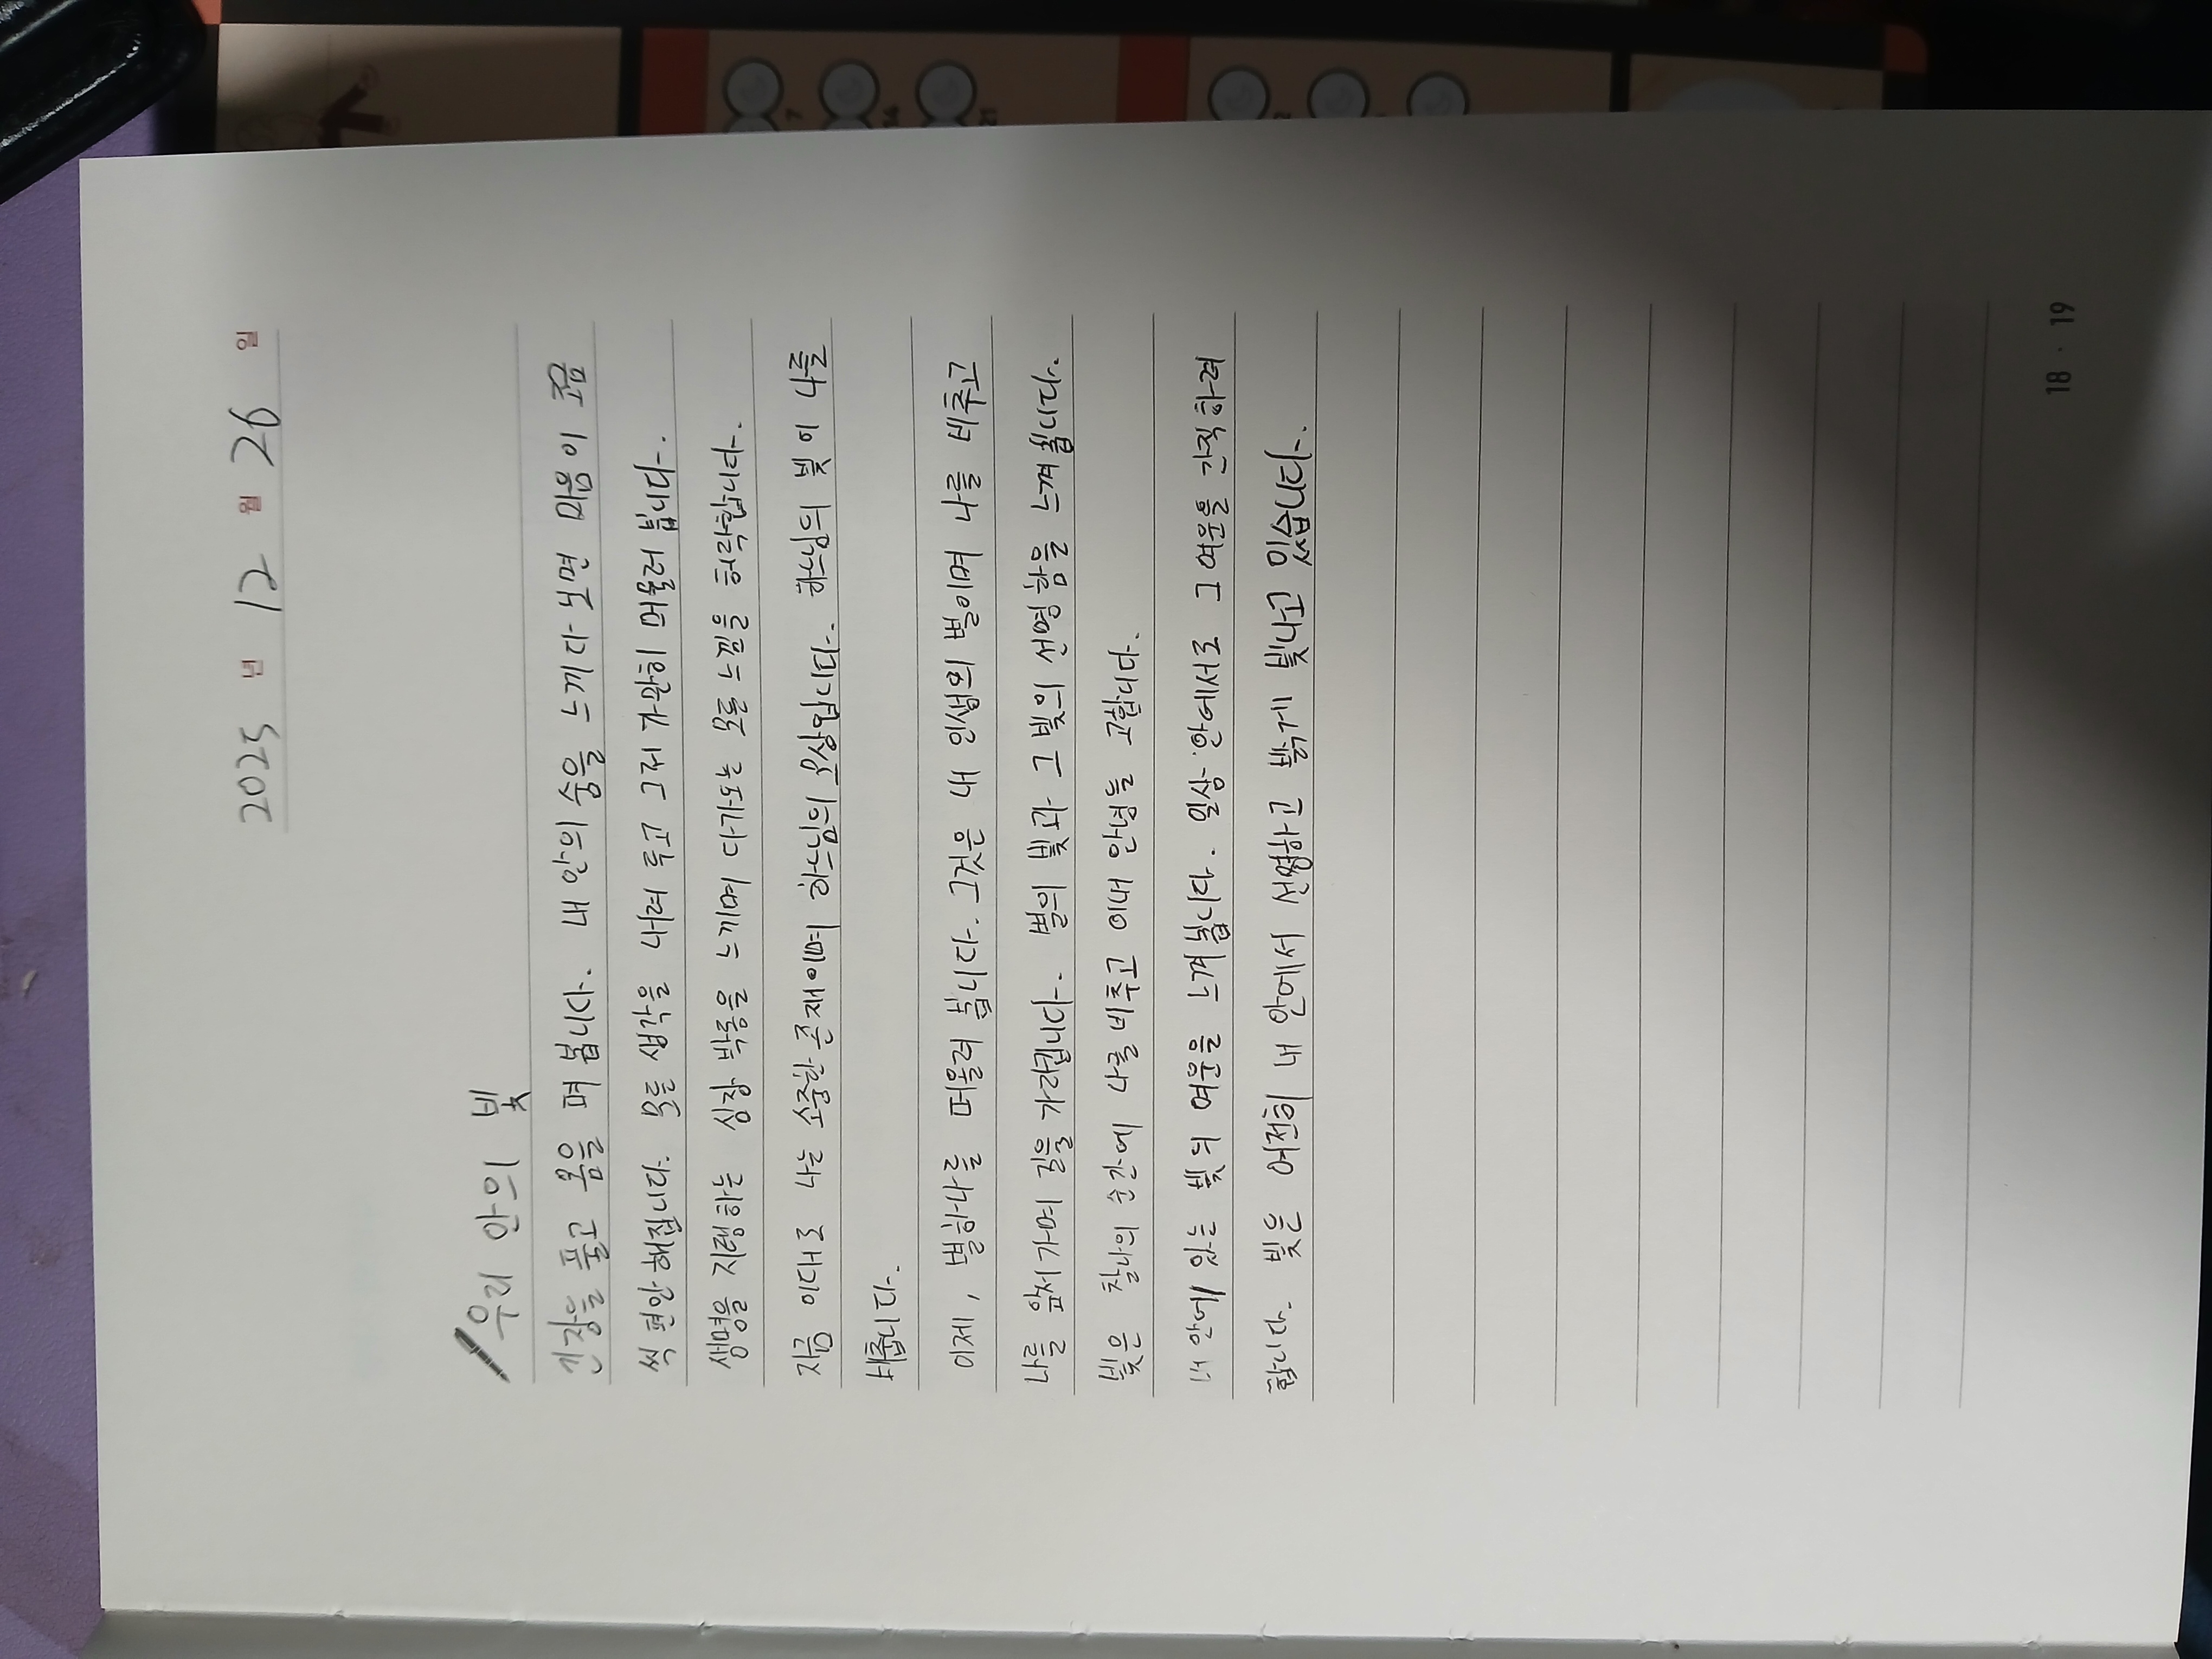 2025 년 12 월 26 일
우리 안의 빛
긴장을 풀고 몸을 펴 봅니다. 내 안의 숨을 느끼다 보면 마음이 조금
씩 편안해집니다. 모든 생각을 내려 두고 그저 가만히 머물러 봅니다.
생명을 지탱하는 심장 박동을 느끼며 다가오는 모든 느낌을 허락합니다.
지금 이대로 나는 소중한 존재이며 하느님의 모상입니다. 하느님의 빛이 나를
비춥니다.
이제, 별 하나를 떠올려 봅니다. 그것은 내 인생의 별이며 나를 비추고
나를 앞서가며 길을 가리킵니다. 별의 빛과 그 빛의 선명함을 느껴봅니다.
빛은 찰나의 순간에 나를 비추고 이내 안녕을 고합니다.
내 안에 있는 빛의 여운을 느껴봅니다. 일상 안에서도 그 여운을 간직하려
합니다. 빛은 여전히 내 안에서 선명하고 밝게 빛나고 있습니다.
18 · 19